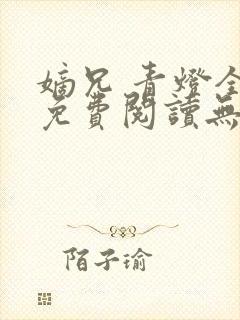 嫡兄 青燈全
免費閱讀無
陌子瑜